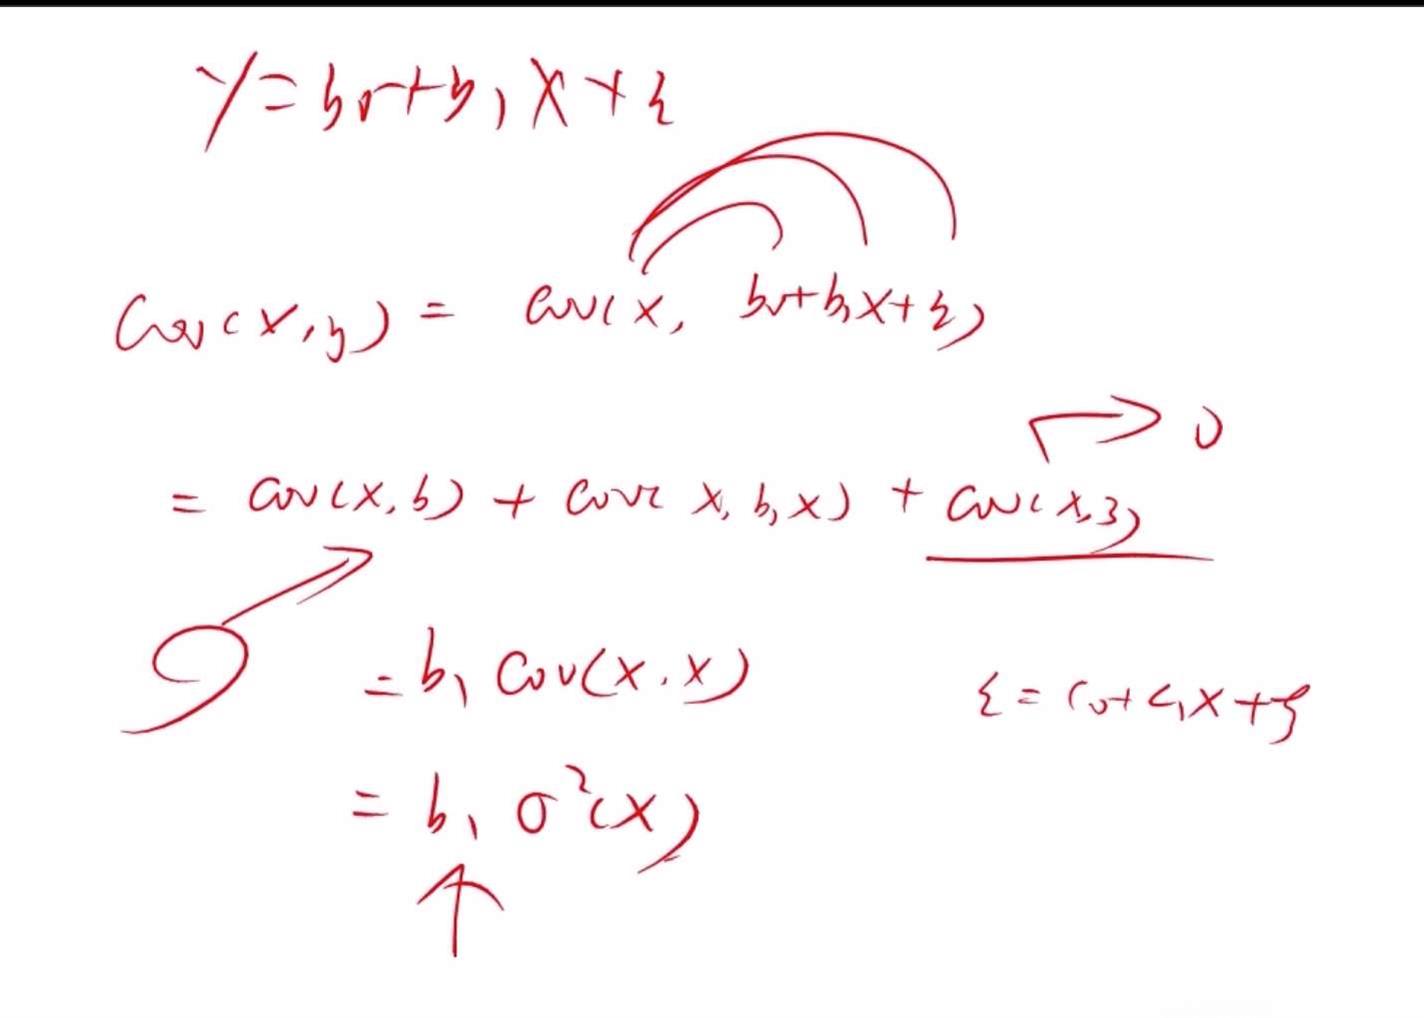 y = b₀ + b₁ X + ξ
Cov(X, y) = Cov(X, b₀ + b₁X + ξ)
0
= Cov(X, b) + Cov(X, b₁X) + Cov(X, ξ)
= b₁ Cov(X, X)
ξ = C₀ + C₁X + ξ
= b₁ σ²(X)